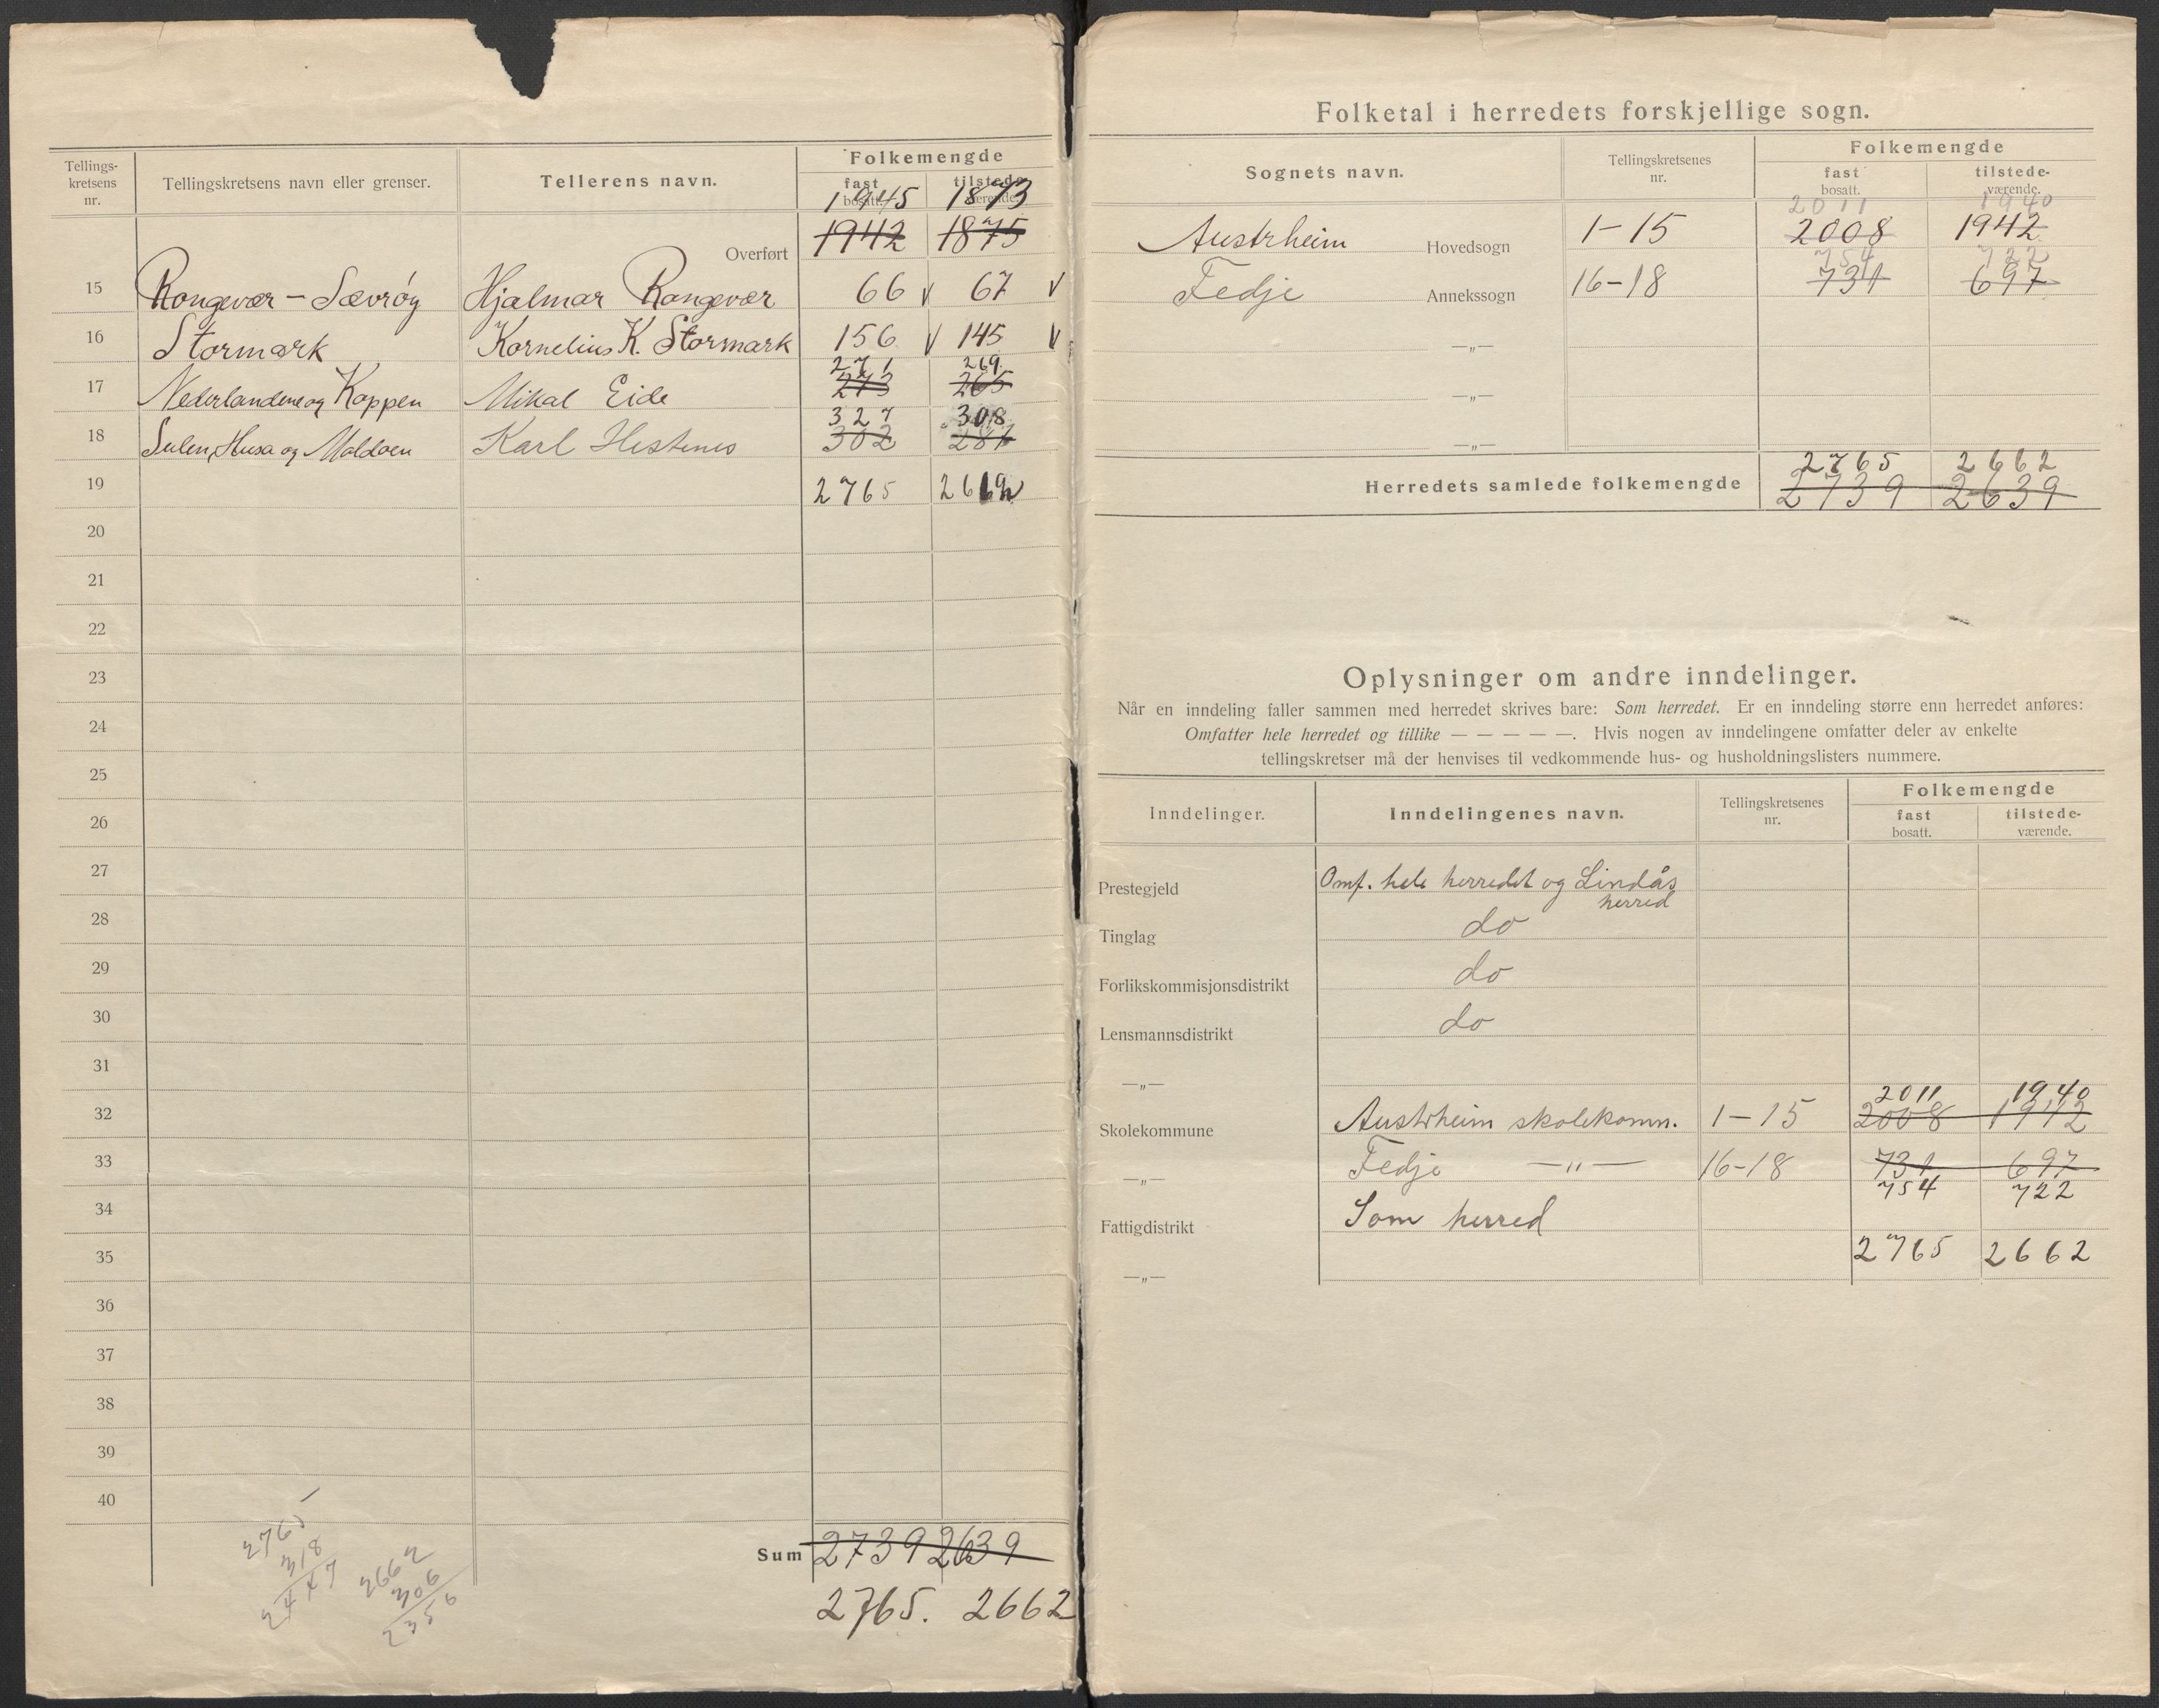 Tellings-
kretsens
nr.
Tellingskretsens navn eller grenser.
Tellerens navn.
Folkemengde
fast
bosatt.
tilstede-
værende.
1945 1873
Overført 1942 1875
15 Rongevær - Sævrøy Hjalmar Rongevær 66 v 67 v
16 Stormark Kornelius K. Stormark 156 v 145 v
271 269
17 Nederlandene og Koppen Mikal Eide 273 265
327 308
18 Sulen, Husa og Moldøen Karl Hestenes 302 287
19 2765 2662
20
21
22
23
24
25
26
27
28
29
30
31
32
33
34
35
36
37
38
39
40
2765
318
2447
2662
306
2356
Sum 2739 2639
2765. 2662
Folketal i herredets forskjellige sogn.
Sognets navn.
Tellingskretsenes
nr.
Folkemengde
fast
bosatt.
tilstede-
værende.
2011 1940
Austrheim Hovedsogn 1-15 2008 1942
754 722
Fedje Annekssogn 16-18 731 697
—„—
—„—
—„—
2765 2662
Herredets samlede folkemengde 2739 2639
Oplysninger om andre inndelinger.
Når en inndeling faller sammen med herredet skrives bare: Som herredet. Er en inndeling større enn herredet anføres:
Omfatter hele herredet og tillike — — — — —. Hvis nogen av inndelingene omfatter deler av enkelte
tellingskretser må der henvises til vedkommende hus- og husholdningslisters nummere.
Inndelinger.
Inndelingenes navn.
Tellingskretsenes
nr.
Folkemengde
fast
bosatt.
tilstede-
værende.
Prestegjeld Omf. hele herredet og Lindås
herred
Tinglag do
Forlikskommisjonsdistrikt do
Lensmannsdistrikt do
—„—
2011 1940
Skolekommune Austrheim skolekomm. 1-15 2008 1942
—„— Fedje —„— 16-18 731 697
754 722
Fattigdistrikt Som herred
—„— 2765 2662